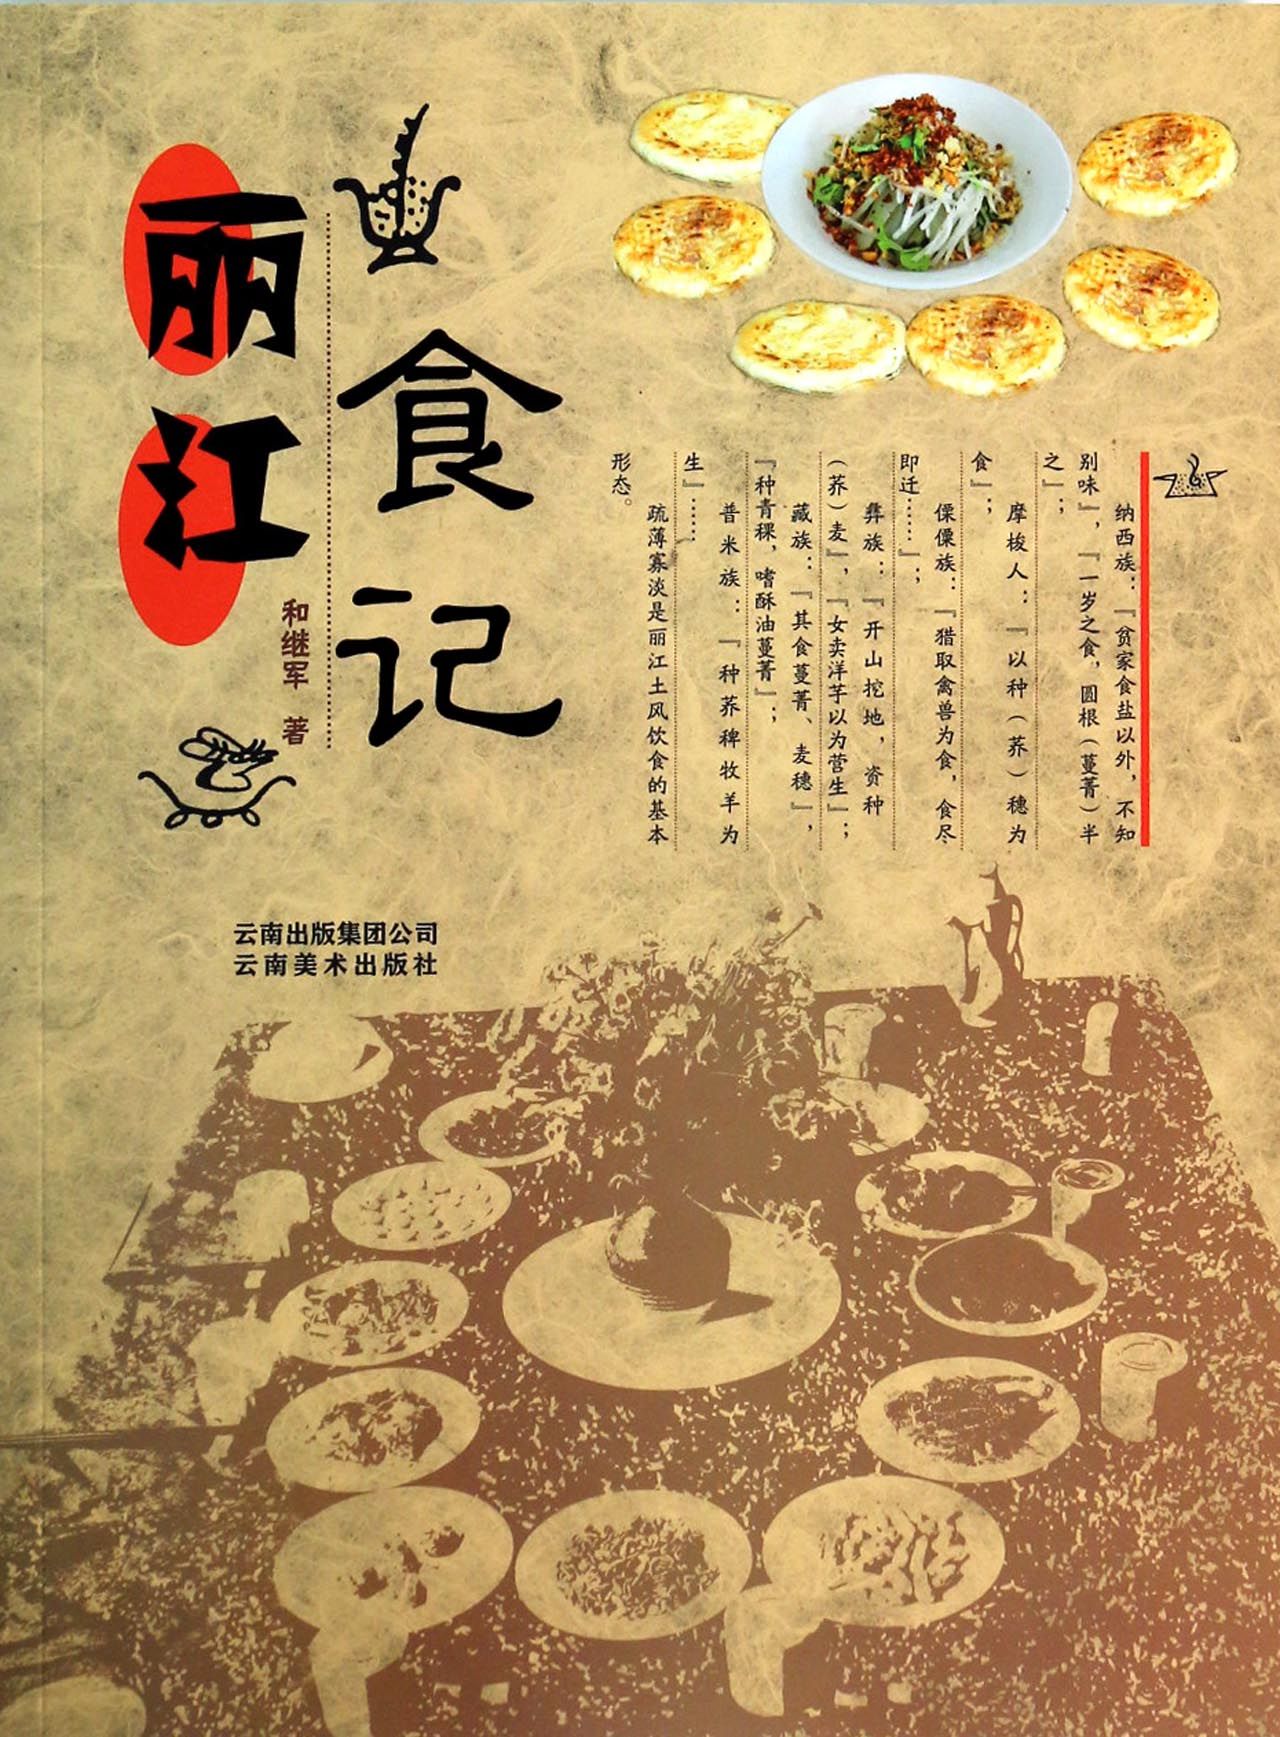 丽江
食记
和继军 著
纳西族：『贫家食盐以外，不知
别味』，『一岁之食，圆根（蔓菁）半
之』；
摩梭人：『以种（荞）穗为
食』；
傈僳族：『猎取禽兽为食，食尽
即迁……』；
彝族：『开山挖地，资种
（荞）麦』，『女卖洋芋以为营生』；
藏族：『其食蔓菁、麦穗』，
『种青稞，嗜酥油蔓菁』；
普米族：『种荞稗牧羊为
生』……
疏薄寡淡是丽江土风饮食的基本
形态。
云南出版集团公司
云南美术出版社